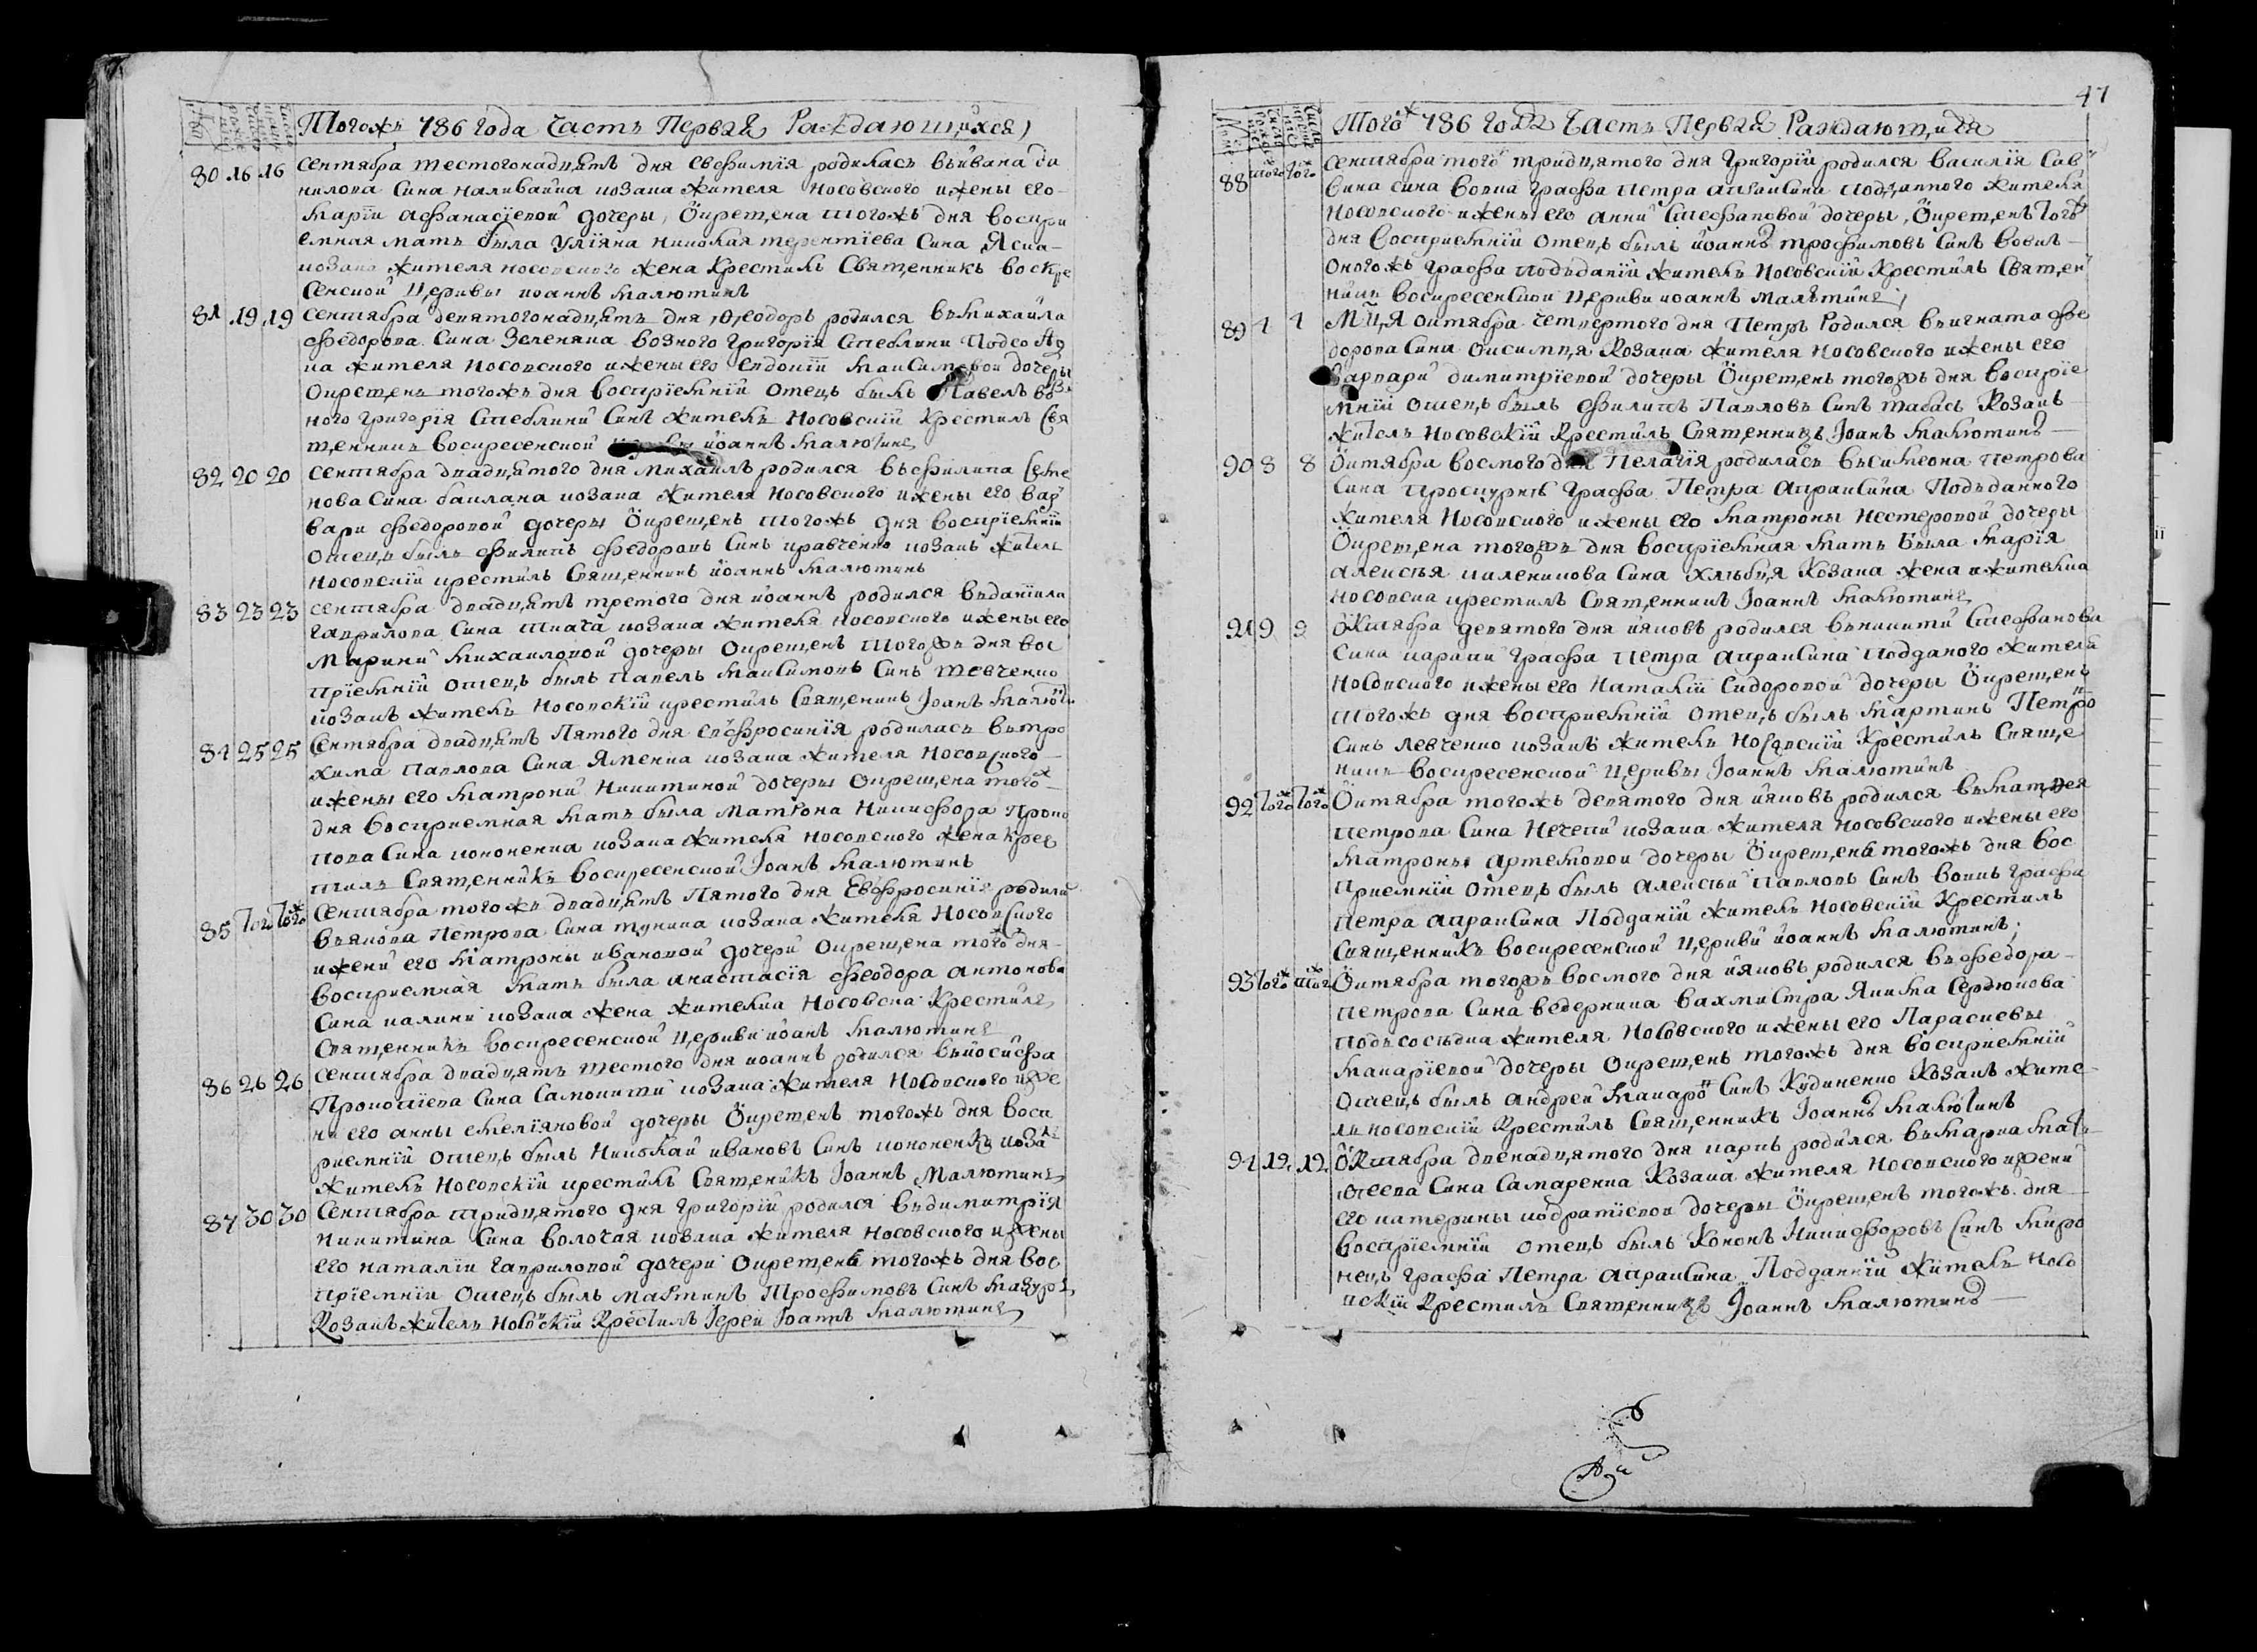 Тогожъ 786 года Часть Первая Раждающихся
80 16 16 Сентября шестогонадцять дня Евфимія родилась въ Ивана Да
нилова Сина Наливайка козака жителя Носовского и жены его
Маріи Афанасіевой дочеры, Окрещена тогожъ дня воспри
емная мать была Уліяна Николая Терентіева Сина Яс
козака жителя Носовского жена Крестилъ Священникъ Воскре
сенской Церквы Иоаннъ Малютинъ
81 19 19 Сентября девятогонадцять дня Ѳеодоръ родился въ Михаила
Федорова Сина Зеленяка возного Григорія Стеблини Подсосѣд
ка жителя Носовского и жены его Евдокіи Максимовой дочеры
Окрещенъ тогожъ дня воспріемній отецъ былъ Павелъ воз
ного Григорія Стеблини Синъ житель Носовскій Крестилъ Свя
щенникъ Воскресенской Иоаннъ Малютинъ
82 20 20 Сентября двадцятого дня Михаилъ родился въ Филипа Семе
нова Сина Баклана козака жителя Носовского и жены его Вар
вари Федоровой дочеры Окрещенъ тогожъ дня воспріемній
отецъ былъ Филипъ Федоровъ Синъ Кравченко козакъ житель
Носовскій крестилъ Священникъ Иоаннъ Малютинъ
83 23 23 Сентября двадцять третого дня Иоаннъ родился въ Даніила
Гаврилова Сина Ткача козака жителя Носовского и жены его
Марини Михаиловой дочеры Окрещенъ тогожъ дня вос
пріемній отецъ былъ Павелъ Максимовъ Синъ Шевченко
козакъ житель Носовскій крестилъ Священикъ Іоанъ Малют
84 25 25 Сентября двадцять Пятого дня Евфросинія родилась въ Тро
хима Павлова Сина Яменка козака жителя Носовского
и жены его Матрони Никитиной дочеры Окрещена того ж
дня восприемная мать была Матрона Никифора Проко
пова Сина Кононенка козака жителя Носовского жена Крес
тилъ Священникъ Воскресенской Іоанъ Малютинъ
85 того того ж Сентября тогожъ двадцять Пятого дня Евфросинія родила
въ Якова Петрова Сина козака жителя Носовского
и жени его Матроны Ивановой дочери Окрещена того дня
восприемная мать была Анастасія Феодора Антонова
Сина Калини козака жена жителка Носовска Крестилъ
Священникъ Воскресенской Церкви Иоанъ Малютинъ
86 26 26 Сентября двадцять шестого дня Иоаннъ родился въ Иосифа
Прокопіева Сина козака жителя Носовского и же
ны его Анны Емеліяновой дочеры Окрещенъ тогожъ дня восп
риемній отецъ былъ Николай Ивановъ Синъ Кононенко коза
житель Носовскій крестилъ Священикъ Іоаннъ Малютинъ
87 30 30 Сентября тридцятого дня Григорій родился въ Димитрія
Никитина Сина Волочая козака жителя Носовского и жены
его Наталіи Гавриловой дочери Окрещенъ тогожъ дня вос
пріемній отецъ былъ Мартинъ Трофимовъ Синъ
Козакъ житель Носовскій Крестилъ Іерей Іоаннъ Малютинъ
47
Того ж 786 года Часть Первая Раждающихся
88 того ж того ж Сентября того тридцятого дня Григорій родился Василія Сав
вина сина Вовка Графа Петра Апраксина Подданного жителя
Носовского и жены его Анни Стефановой дочеры, Окрещенъ того ж
дня Восприемній отецъ былъ Иоаннъ Трофимовъ Синъ Вовкъ
оногожъ Графа подъданій житель Носовскій Крестилъ Священ
никъ Воскресенской Церкви Иоаннъ Малютинъ
89 4 4 М-ця Октября четвертого дня Петръ Родился въ Игната Фе
дорова Сина Козака жителя Носовского и жены его
Варвари Димитріевой дочеры Окрещенъ тогожъ дня воспріе
мній отецъ былъ Филипъ Павловъ Синъ Козакъ
житель Носовскій Крестилъ Священникъ Іоанъ Малютинъ
90 8 8 Октября восмого дня Пелагія родилась въ Симеона Петрова
Сина Проскурнѣ Графа Петра Апраксина Подъданного
жителя Носовского и жены его Матроны Нестеровой дочеры
Окрещена тогожъ дня воспріемная мать была Марія
Алексѣя Сина Хлѣбця Козака жена и жителка
Носовска крестилъ Священникъ Іоаннъ Малютинъ
91 9 9 Октября девятого дняИяковъ родился въ Никити Стефанова
Сина Графа Петра Апраксина Подданого жителя
Носовского и жены его Наталіи Сидоровой дочеры Окрещенъ
тогожъ дня восприемній отецъ былъ Мартинъ Петро
Синъ Левченко козакъ житель Носовскій Крестилъ Свяще
никъ Воскресенской Церквы Іоаннъ Малютинъ
92 того ж того ж Октября тогожъ девятого дня Ияковъ родился въ Матвея
Петрова Сина Нечепи козака жителя Носовского и жены его
Матроны Артемовой дочеры Окрещенъ тогожъ дня вос
приемній отецъ былъ Алексѣй Павловъ Синъ Вовкъ Графа
Петра Апраксина Подданій житель Носовскій Крестилъ
Священникъ Воскресенской Церкви Иоаннъ Малютинъ;
93 того ж того ж Октября тогожъ восмого дня Ияковъ родился въ Федора
Петрова Сина Ведерника вахмистра Якима Сердюкова
подъсосѣдка жителя Носовского и жены его Парасиевы
Макаріевой дочеры Окрещенъ тогожъ дня восприемній
отецъ былъ Андрей Макаро Синъ Кудиненко Козакъ жите
ль Носовскій Крестилъ Священникъ Іоаннъ Малютинъ
94 12 12 Октября двенадцятого дня Карпъ родился въ Марка Мат
ѳеева Сина Самаренка Козака жителя Носовского и жени
его Катерины Кодратіевой дочеры Окрещенъ тогожъ дня
воспріемній отецъ былъ Кононъ Никифоровъ Синъ Миро
нецъ Графа Петра Апраксина Подданній житель Носо
вскій Крестилъ Священникъ Іоаннъ Малютинъ